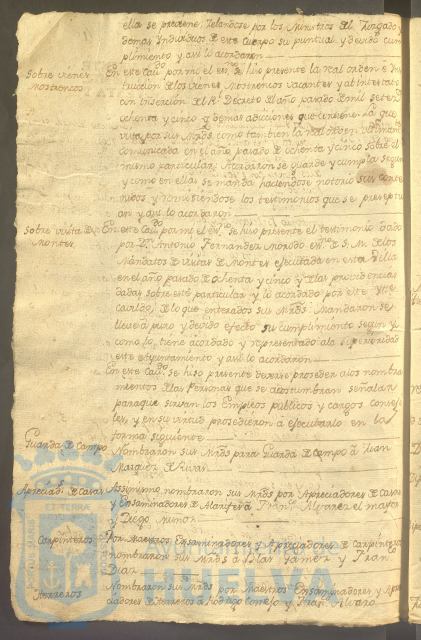 ella se previene, zelandose por los Ministros del Juzgado y
demas Yndividuos de este cuerpo su puntual y devido cum
plimiento y asi lo acordaron
Sobre vienes
Mostrencos
En este Cav.do por mi el es.no se hizo presente la real orden e Yns
truccion de los vienes Mostrencos vacantes y abintestato
con insercion del R.l Decreto del año pasado de mil setez.s
ochenta y cinco y demas adiciones que contiene. La que
vista por sus Mrds. como tambien la real orden
comunicada en el año pasado de ochenta y cinco sobre el
mismo particular; Acordaron se guarde y cumpla segun
y como en ella se manda haciendose notorio sus conte
nidos y remitiendose los testimonios que se preceptu
an y asi lo acordaron
Sobre visita de
Montes
En este Cav.do por mi el es.no se hizo presente el testimonio dado
por D.n Antonio Fernandez Moriido es.no de S. M. de los
Mandatos de visitas de Montes ejecutada en esta Villa
en el año pasado de ochenta y cinco y de las providencias
dadas sobre este particular y lo acordado por este Ytte
cavildo, de lo que enterados sus Mrds. Mandaron se
lleve a puro y devido efecto su cumplimiento segun y
como lo tiene acordado y representado a la superioridad
este Ayuntamiento y asi lo acordaron
En este Cav.do se hizo presente deverse proseder a los nombra
mientos de las personas que se acostumbran señalar
para que sirvan los Empleos publicos y cargos conseji
les, y en su virtud prosedieron a ejecutarlo en la
forma siguiente
Guarda de Campo
Nombraron sus Mrds para Guarda de Campo a Juan
Marquez de Rivas
Apreciad.s de Casas
Assimismo nombraron sus Mrds por Apreciadores de Casas
y Ensaminadores de Alarifes a Fran.co Alvarez el mayor
y Diego Muñoz
Carpinteros
Por Maestros Ensaminadores y Apreciadores de Carpinteros
nombraron sus Mrds a Blas Gamez y Fran.co
Diaz
Herreros
Nombraron sus Mrds por Maestros Ensaminadores y Apre
ciadores de Herreros a Rodrigo Cornejo y Fran.co Alvaro
Ayuntamiento de
HUELVA